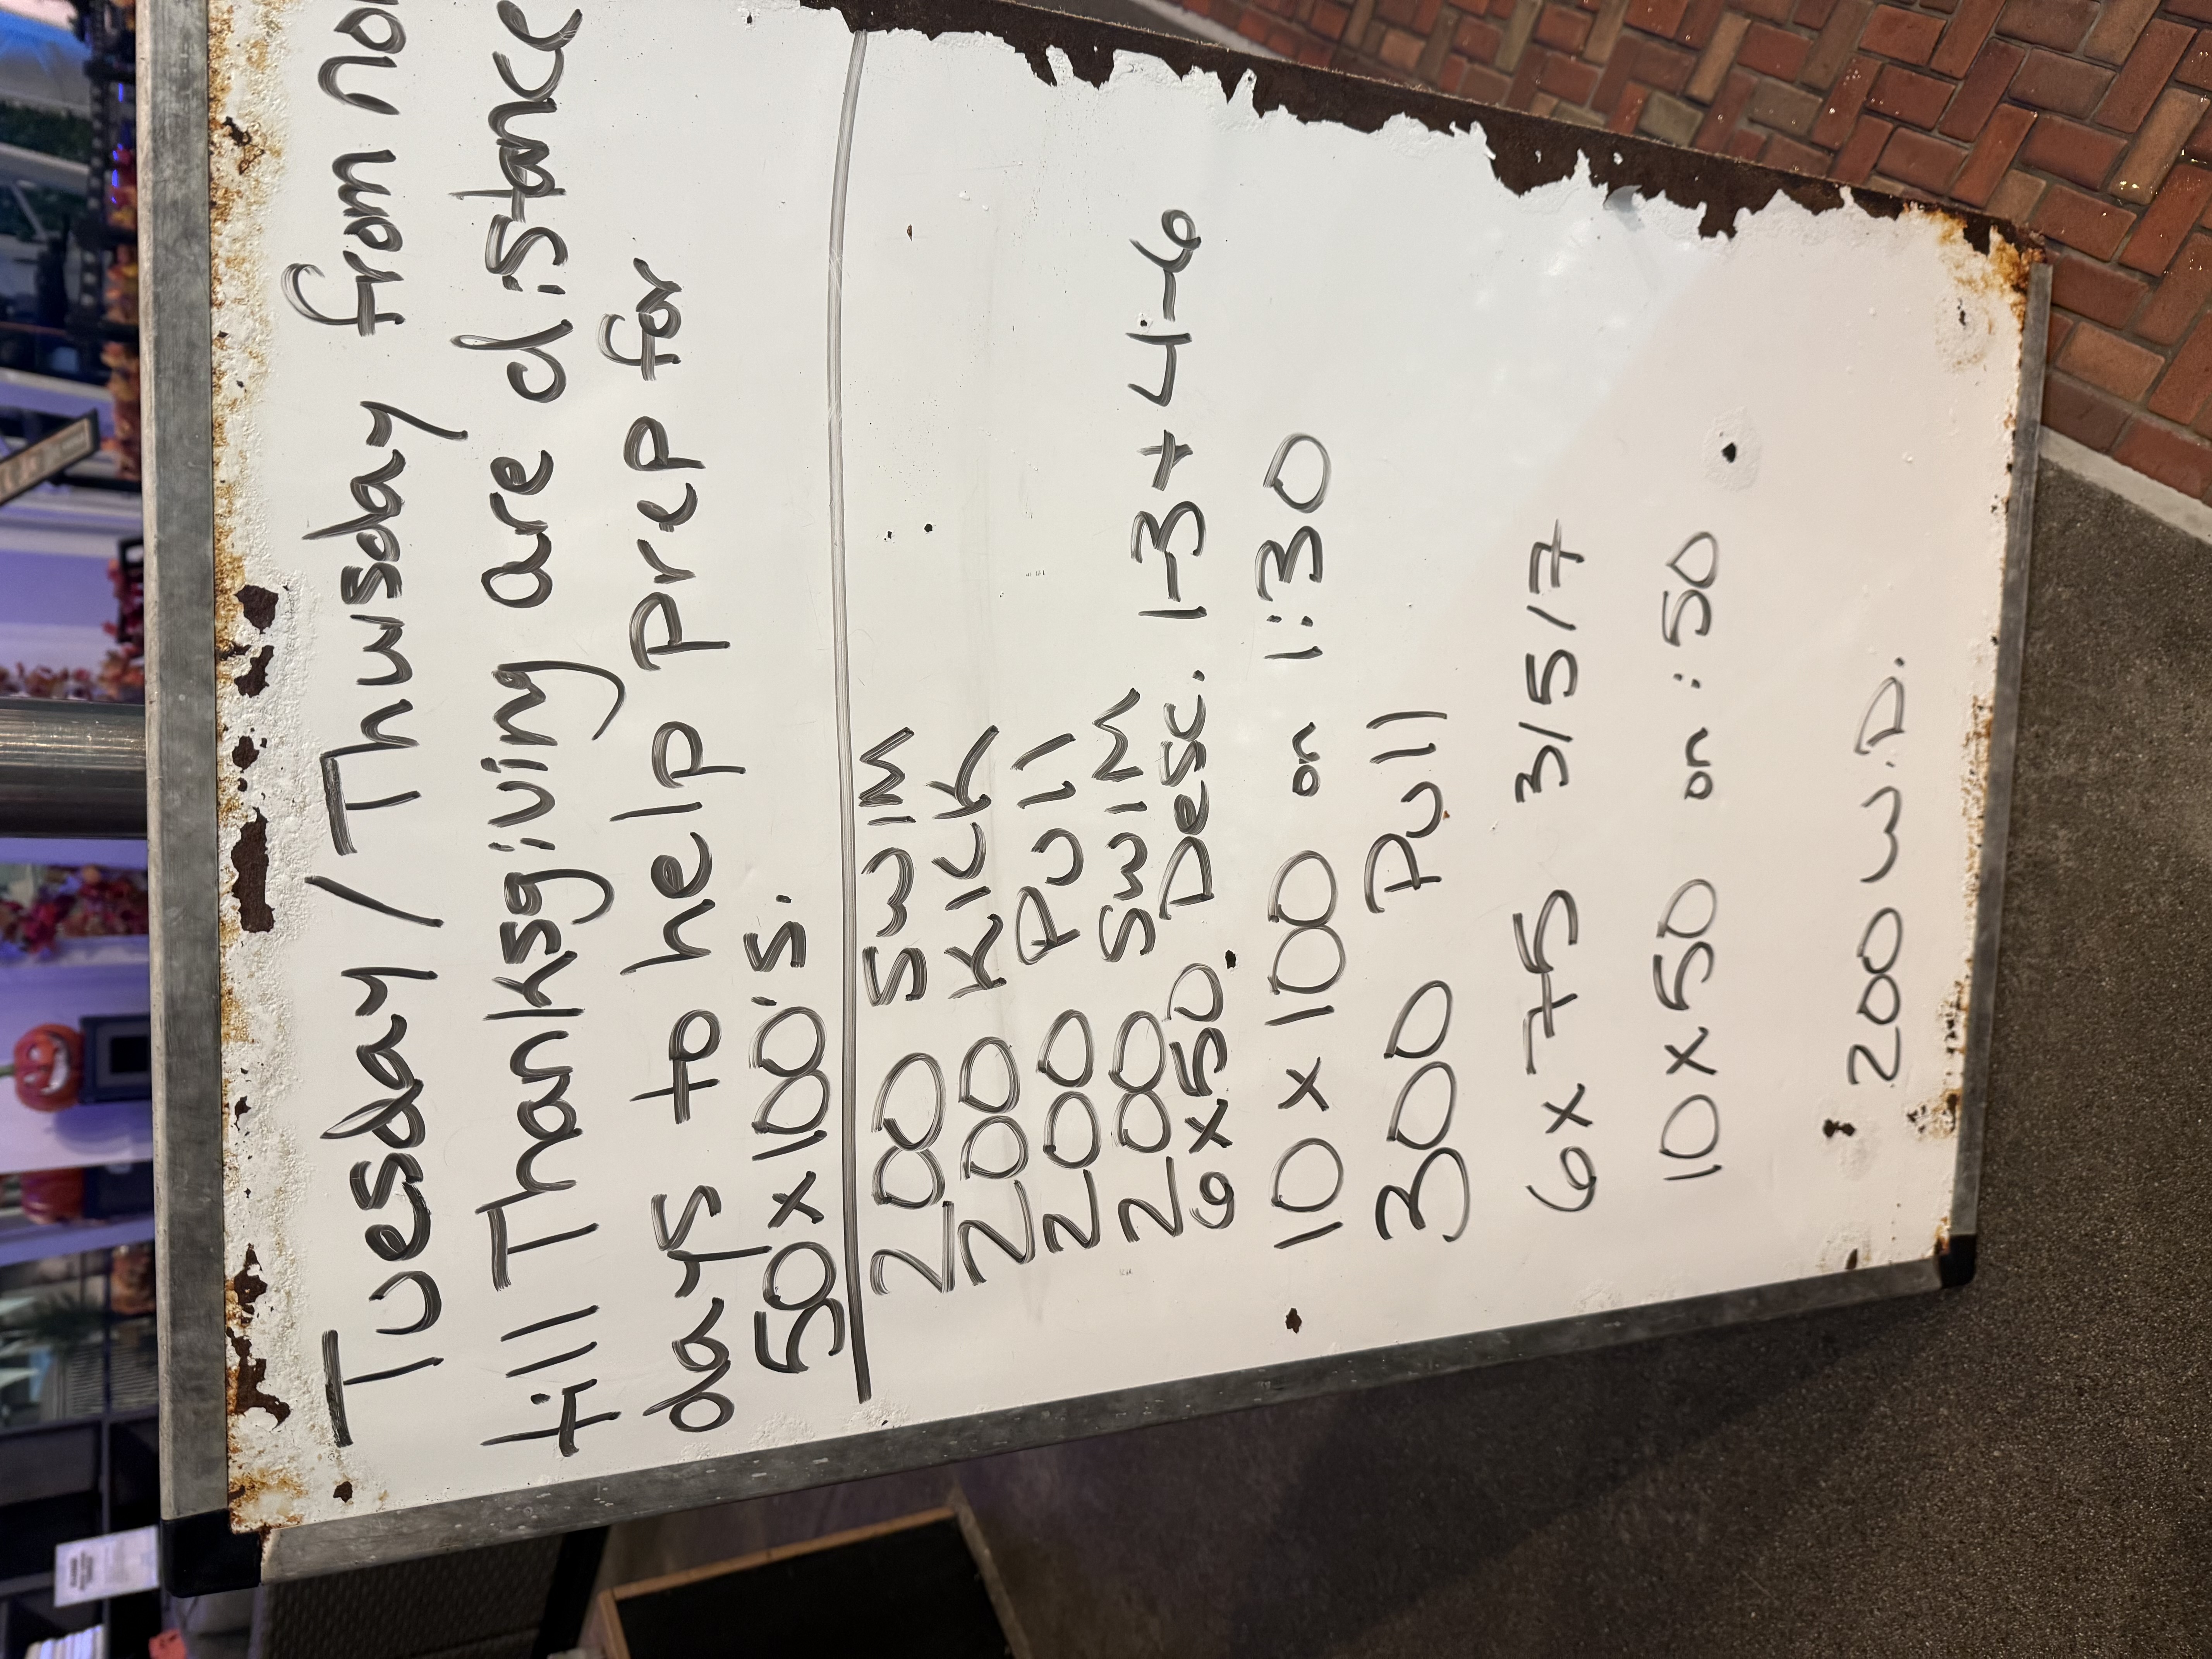 Tuesday / Thursday from no
till Thanksgiving are distance
days to help prep for
50x100's.
200 Swim
200 Kick
200 Pull
200 Swim
6x50 Desc. 1-3+4-6
10x100 on 1:30
300 Pull
6x75 3/5/7
10x50 on :50
200 W.D.